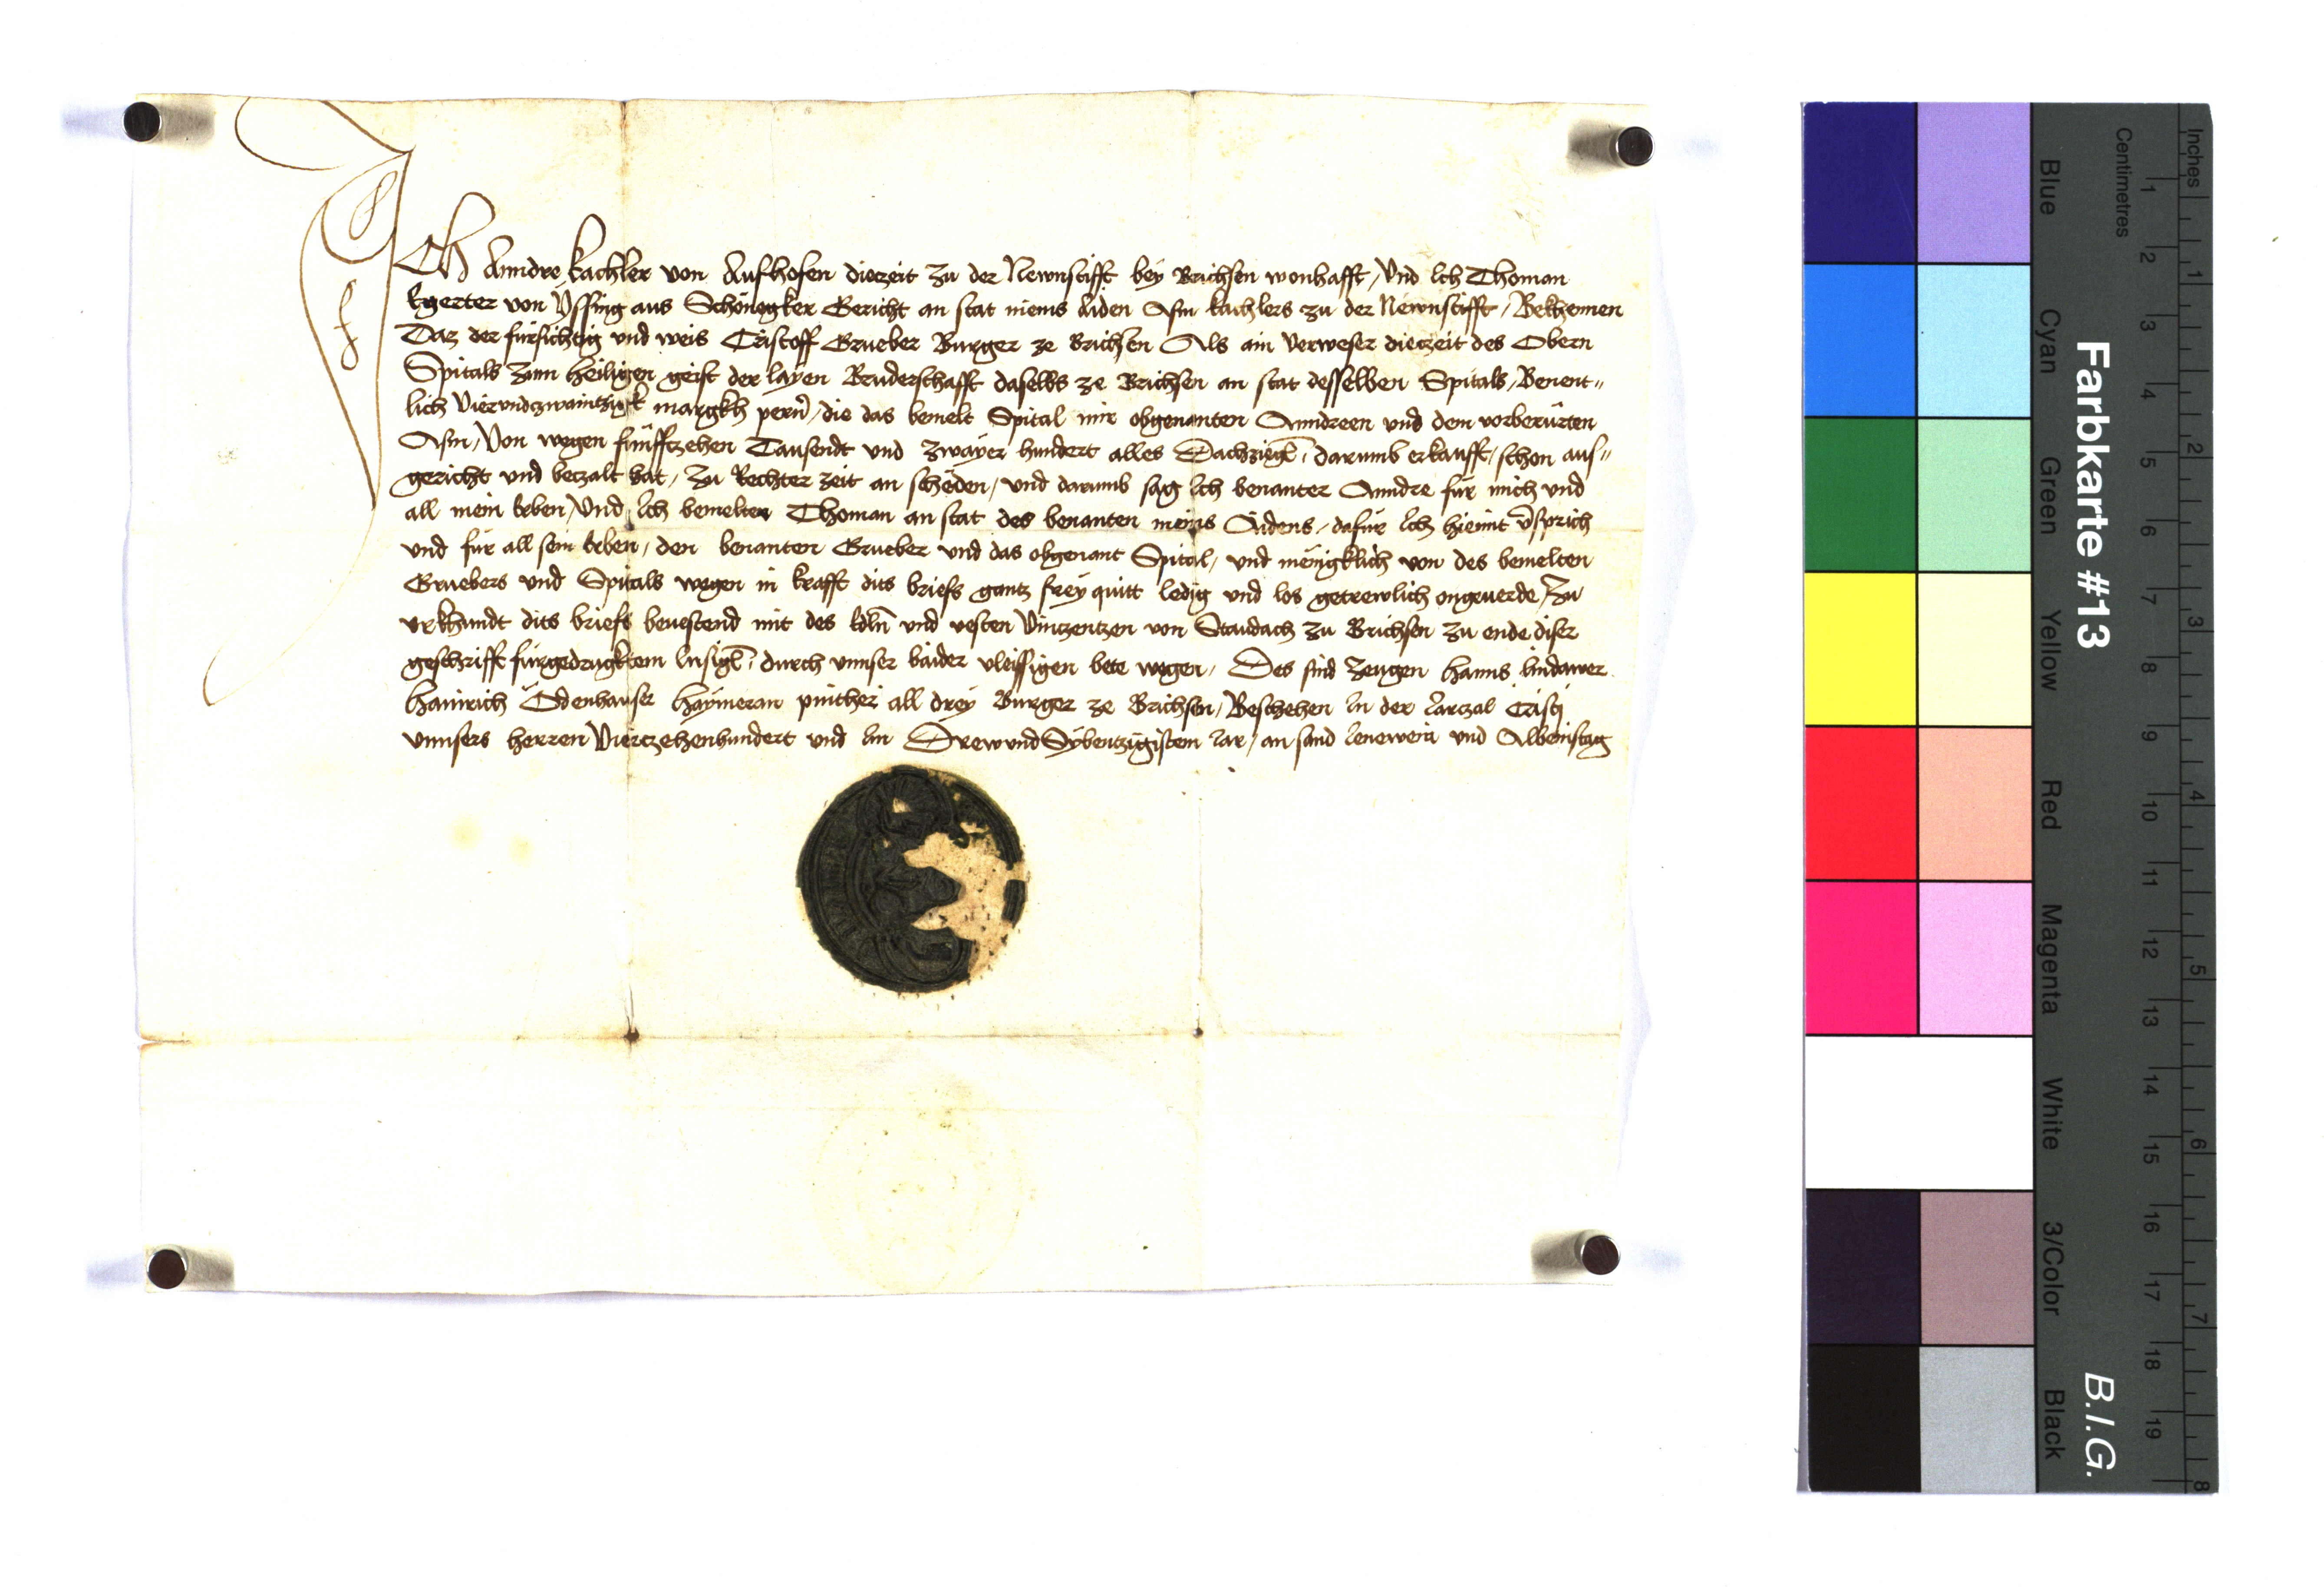 Ich Anndre kachler von Aufhofen diezeit zu der Newnstifft bey Brichsen wonhafft / Und Ich Thoman
kgerter von Yssing aus Schönegker Gericht an stat meins Aiden Asm kachlers zu der Newnstifft / Bekhennen
Daz der fürsichtig und weis Cristoff Grueber Burger ze Brichsen Als ain Verweser diezeit des Obern
Spitals zum heiligen geist der layen Bruderschafft daselbs ze Brichsen an stat desselben Spitals / Benent„
lich Vierundzwaintzigk margkh pern̄ / die das bemelt Spital mir obgenanten Anndreen und dem vorberürten
Asm / Von wegen fünfftzehen Tausendt und zwayer hundert alles Dachziegl̄ darumb erkaufft / schon aus„
gericht und bezalt hat / zu Rechter zeit an schëden / und darumb sag Ich benanter Anndre für mich und
all mein Erben / Und Ich bemelter Thoman an stat des benanten meins Aidens / dafür Ich hiemit v̄sprich
und für all sein Erben / den benanten Grueber und das obgenant Spital / und mënigklich von des bemelten
Gruebers und Spitals wegen in krafft dits briefs gantz frey quitt ledig und los getrewlich ongeuerde / Zu
urkhundt dits briefs beuestend mit des Edln̄ und vesten Vintzentzen von Staudach zu Brichsen zu ende diser
geschrifft fürgedrugktem Insigl̄ durch unnser baider vleissigen bete wegen / Des sind zeugen hanns lindawer
hainrich Ödenhauser haymeran pinther all drey Burger ze Brichsen / Beschehen In der Iarzal Cristi
unnsers herren Viertzehenhundert und Im Drewundsybentzigistem Iar / an sand Ienewein und Albeinstag
Farbkarte #13
B.I.G.
Blue
Cyan
Green
Yellow
Red
Magenta
White
3/Color
Black
Centimetres
1 2 3 4 5 6 7 8 9 10 11 12 13 14 15 16 17 18 19
Inches
1 2 3 4 5 6 7 8